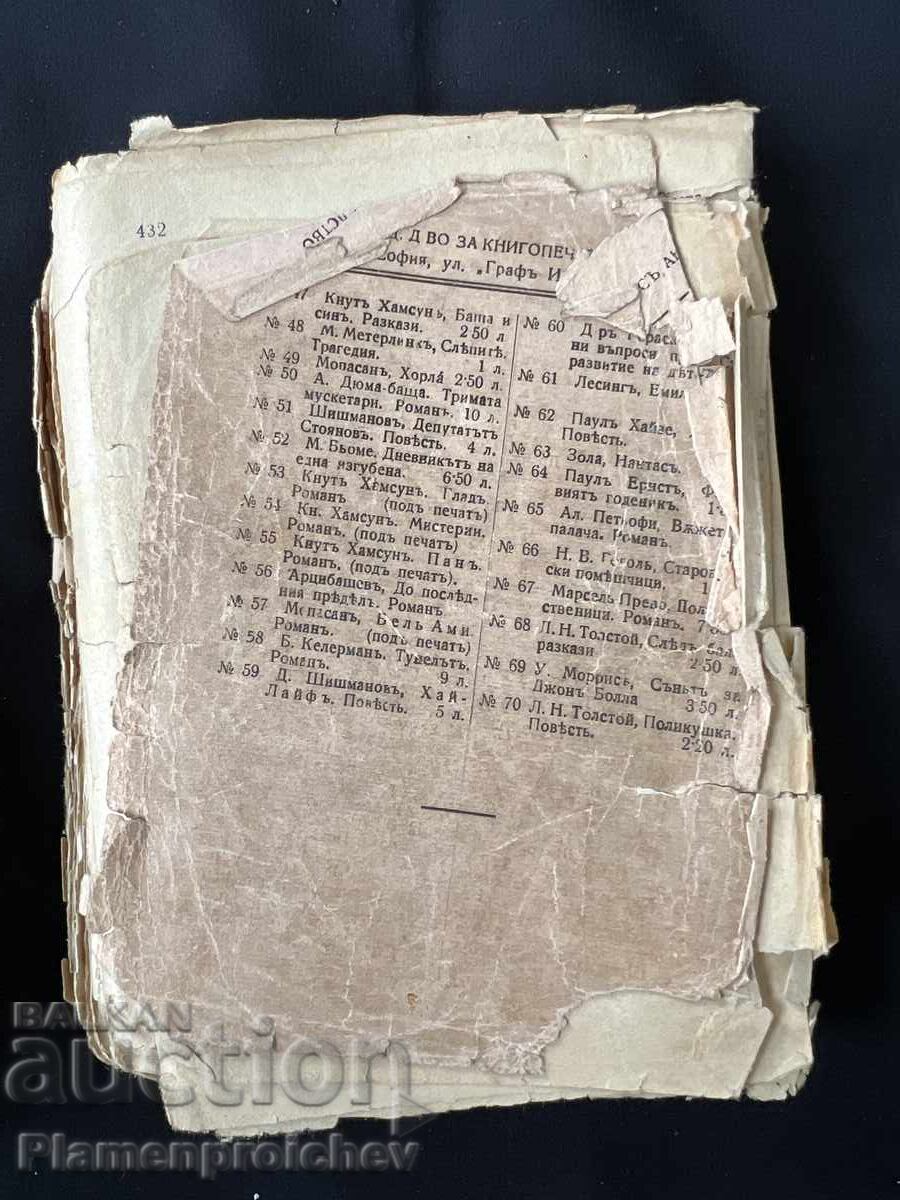 432
СТВО
Д. Д ВО ЗА КНИГОПЕЧ
София, ул. „Графъ И
СЪ, АК
47 Кнутъ Хамсунъ, Баща и
синъ. Разкази. 2·50 л
№ 48 М. Метерлинкъ, Слѣпитѣ.
Трагедия. 1 л.
№ 49 Мопасанъ, Хорла 2·50 л.
№ 50 А. Дюма-баща. Тримата
мускетари. Романъ. 10 л.
№ 51 Шишмановъ, Депутатътъ
Стояновъ. Повѣсть. 4 л.
№ 52 М. Бьоме. Дневникътъ на
една изгубена. 6·50 л.
№ 53 Кнутъ Хамсунъ. Гладъ.
Романъ (подъ печатъ)
№ 54 Кн. Хамсунъ. Мистерии.
Романъ. (подъ печатъ)
№ 55 Кнутъ Хамсунъ. Панъ.
Романъ. (подъ печатъ).
№ 56 Арцибашевъ, До послѣд-
ния прѣдѣлъ. Романъ.
№ 57 Мопасанъ, Бель Ами.
Романъ. (подъ печатъ)
№ 58 Б. Келерманъ. Тунелътъ.
Романъ. 9 л.
№ 59 Д. Шишмановъ, Хай-
Лайфъ. Повѣсть. 5 л.
№ 60 Д ръ
ни въпроси
развитие на дѣт
№ 61 Лесингъ, Емил
№ 62 Паулъ Хайзе,
Повѣсть.
№ 63 Зола, Нантасъ.
№ 64 Паулъ Ернстъ,
виятъ годеникъ. 1
№ 65 Ал. Петьофи, Вѫжет
палача. Романъ.
№ 66 Н. В. Гоголь, Старов
ски помѣщици, 1
№ 67 Марсель Прево, Пол
ственици. Романъ. 7
№ 68 Л. Н. Толстой, Слѣдъ бал
разкази 2·50 л.
№ 69 У. Моррисъ, Сънътъ за
Джонъ Болла 3·50 л.
№ 70 Л. Н. Толстой, Поликушка.
Повѣсть. 2·20 л.
BALKAN
auction
Plamenproichev